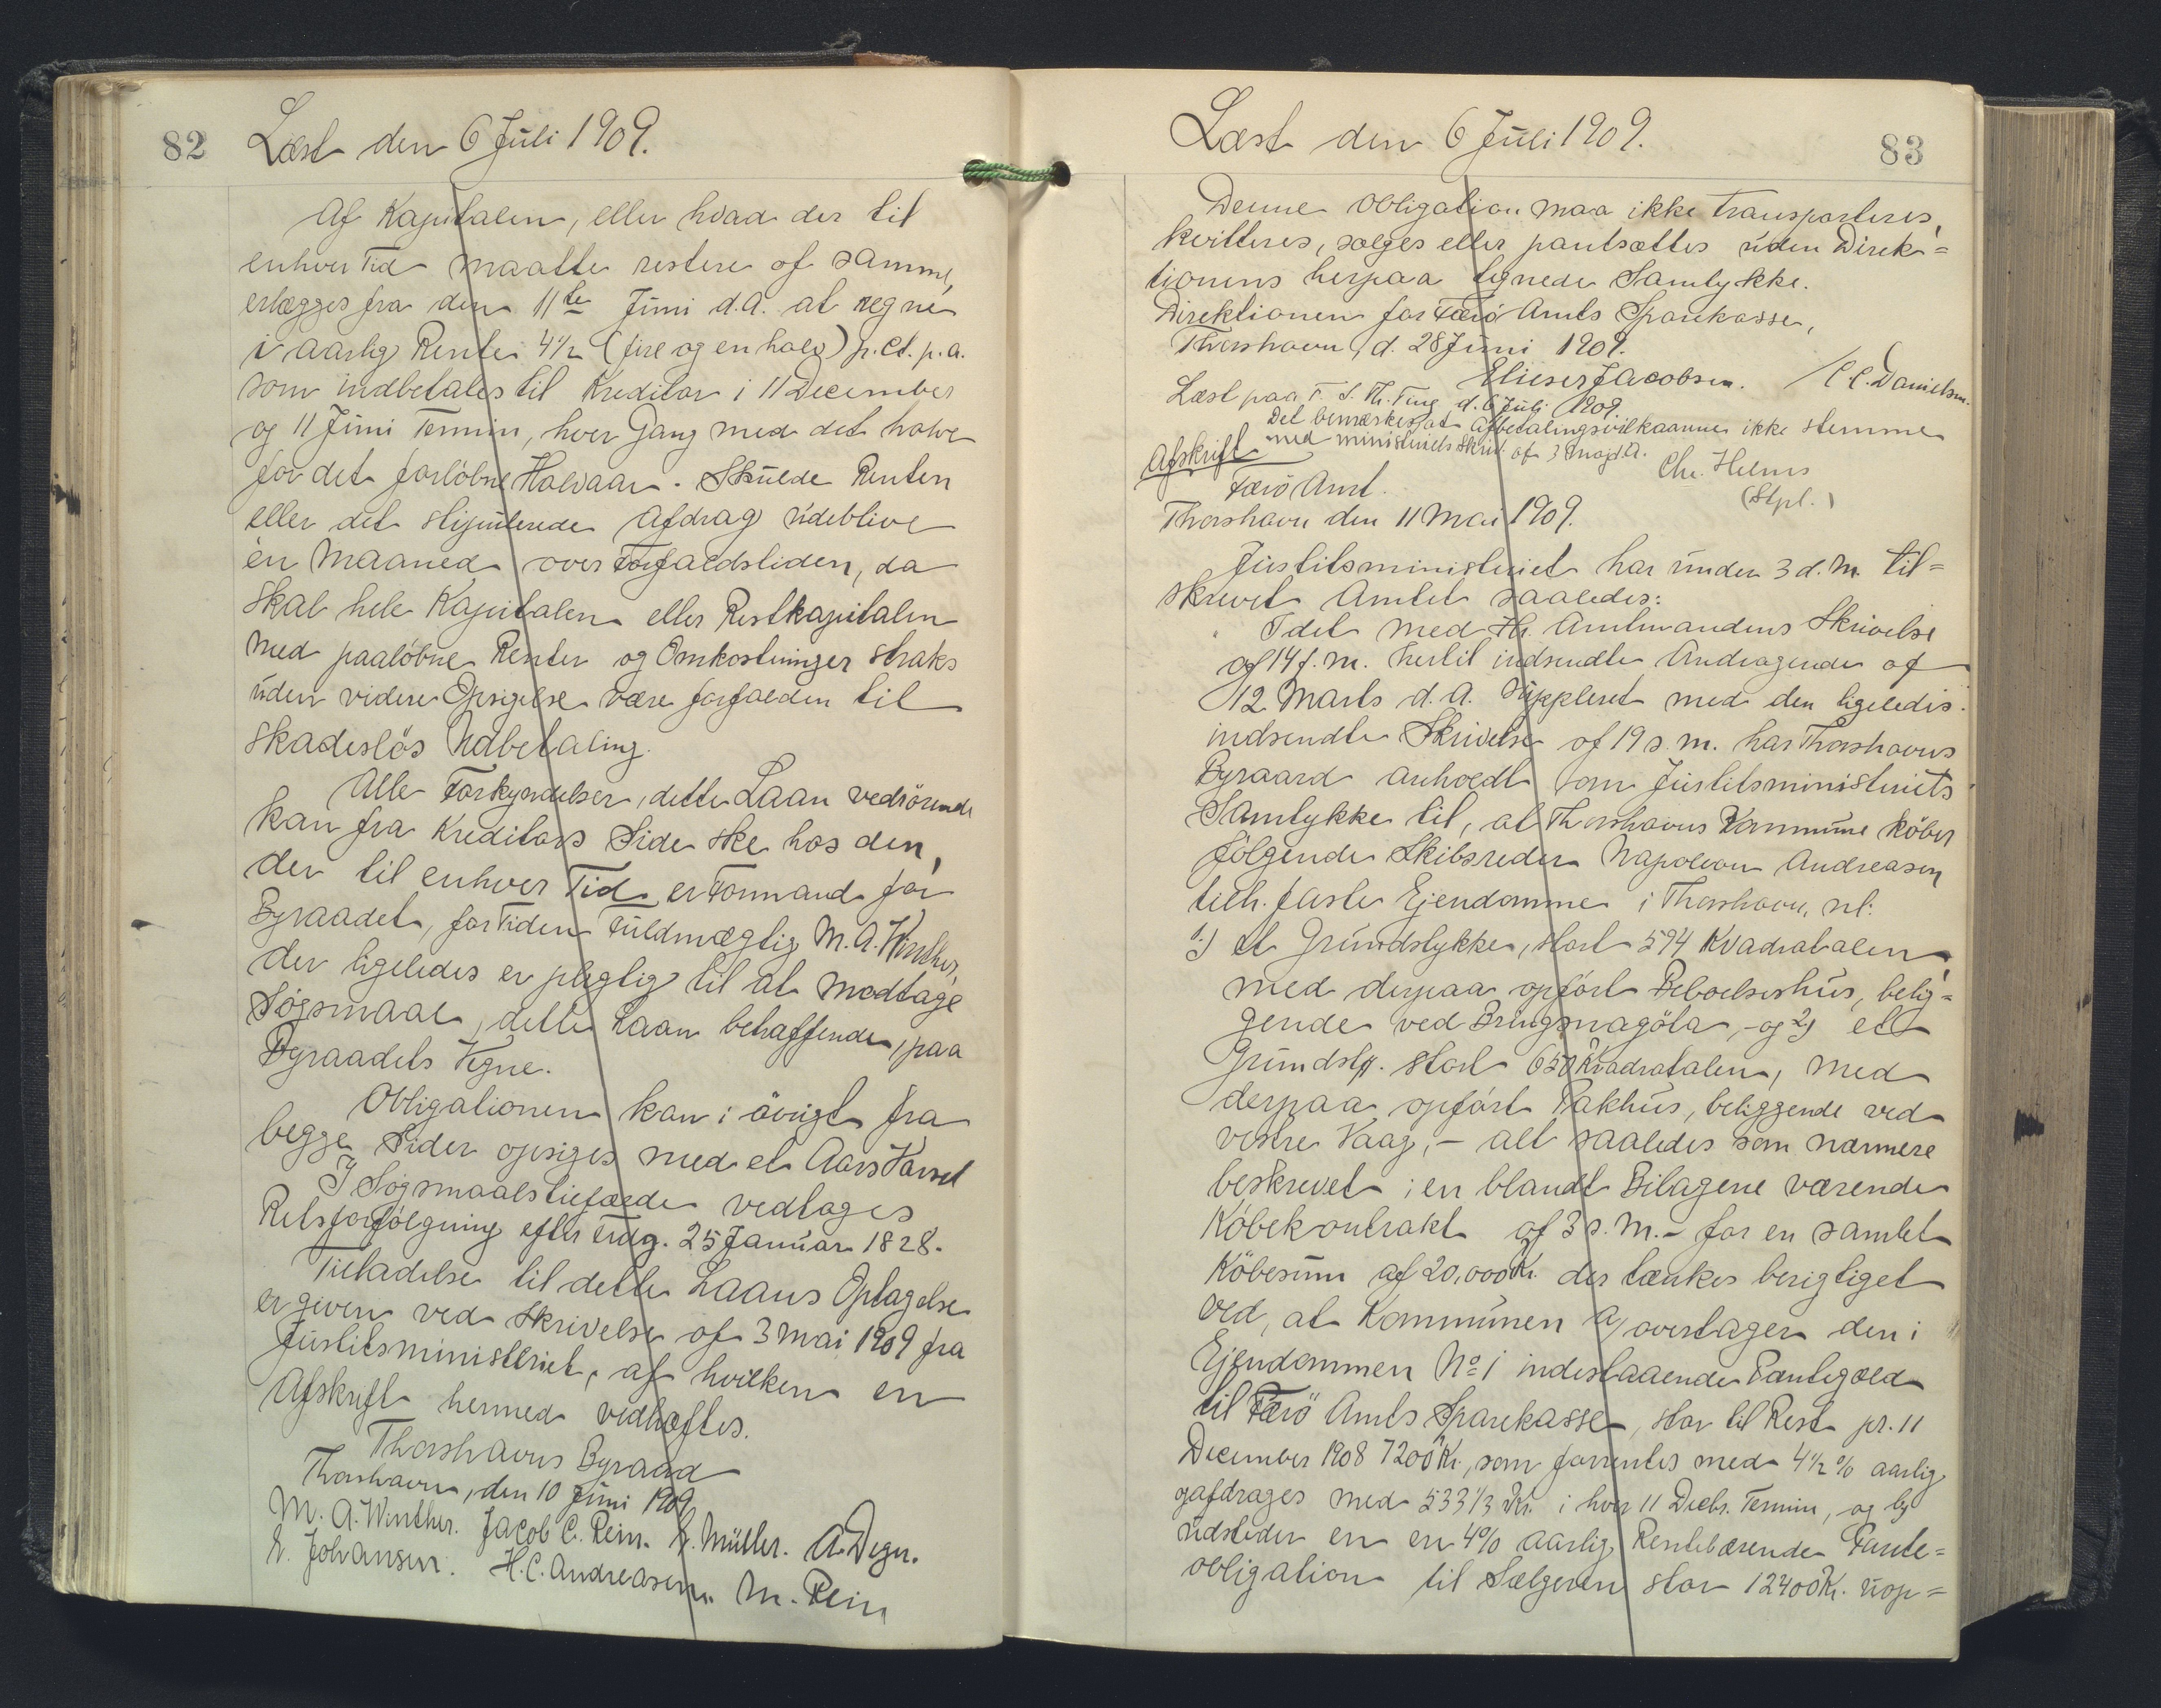 82
Læst den 6 Juli 1909.
Af Kapitalen, eller hvad der til
enhver Tid maatte restere af samme,
erlægges fra den 11te Juni d.A. at regne
i aarlig Rente 4½ (fire og en halv) p.Ct. p.a.
som indbetales til Kreditor i 11 December
og 11 Juni Termin, hver Gang med det halve
for det forløbne Halvaar. Skulde Renten
eller det stipulerede Afdrag udeblive
en Maaned over Forfaldstiden, da
skal hele Kapitalen eller Restkapitalen
med paaløbne Renter og Omkostninger straks
uden videre Opsigelse være forfalden til
skadesløs Udbetaling.
Alle Forkyndelser, dette Laan vedrörende
kan fra Kreditors Side ske hos den,
der til enhver Tid er Formand for
Byraadet, for Tiden Fuldmægtig M.A. Winther,
der ligeledes er pligtig til at modtage
Søgsmaal, dette Laan betræffende, paa
Byraadets Vegne.
Obligationen kan i övrigt fra
begge Sider opsiges med et Aars Varsel
I Søgsmaalstilfælde vedtages
Retsforfölgning efter Frdg. 25 Januar 1828.
Tilladelse til dette Laans Optagelse
er given ved Skrivelse af 3 Mai 1909 fra
Justitsministeriet, af hvilken en
Afskrift hermed vedhæftes.
Thorshavns Byraad
Thorshavn, den 10 Juni 1909
M.A. Winther. Jacob C. Rein. E. Müller. A. Degn.
E. Johansen. H.C. Andreasen. M. Rein
83
Læst den 6 Juli 1909.
Denne Obligation maa ikke transporteres,
kvitteres, sælges eller pantsættes uden Direk=
tionens herpaa tegnede Samtykke.
Direktionen for Færö Amts Sparekasse,
Thorshavn, d. 28 Juni 1909.
Elieser Jacobsen. C.C. Danielsen.
Læst paa F. S. Th. Ting d. 6 Juli 1909.
Det bemærkes, at Afbetalingsvilkaarene ikke stemme
med Ministeriets Skriv. af 3 Maj d.A.
Chr. Helms
(Stpl.)
Afskrift
Færö Amt.
Thorshavn den 11 Mai 1909.
Justitsministeriet har under 3 d.M. til=
skrevet Amtet saaledes:
"Idet med Hr. Amtmandens Skrivelse
af 14 f.M. hertil indsendte Andragende af
12 Marts d.A. suppleret med den ligeledes
indsendte Skrivelse af 19 s.M. har Thorshavns
Byraad anholdt om Justitsministeriets
Samtykke til, at Thorshavns Kommune köber
fölgende Skibsreder Napoleon Andreasen
tilh. faste Ejendomme i Thorshavn, nl:
1) et Grundstykke, stort 594 Kvadratalen,
med derpaa opfört Beboelseshus, belig=
gende ved Bringsnagöta, - og 2) et
Grundstk. stort 650 Kvadratalen, med
derpaa opfört Pakhus, beliggende ved
vestre Vaag, - alt saaledes som nærmere
beskrevet i en blandt Bilagene værende
Köbekontrakt af 3 s.M. - for en samlet
Köbesum af 20,000 Kr. der tænkes berigtiget
ved, at Kommunen a) overtager den i
Ejendommen No 1 indestaaende Pantegæld
til Færö Amts Sparekasse, stor til Rest pr. 11
December 1908 7200 Kr., som forrentes med 4½ % aarlig
og afdrages med 533⅓ Kr. i hver 11 Decbr. Termin, og b)
udsteder en en 4% aarlig Rentebærende Pante=
obligation til Sælgeren stor 12400 Kr. uop=